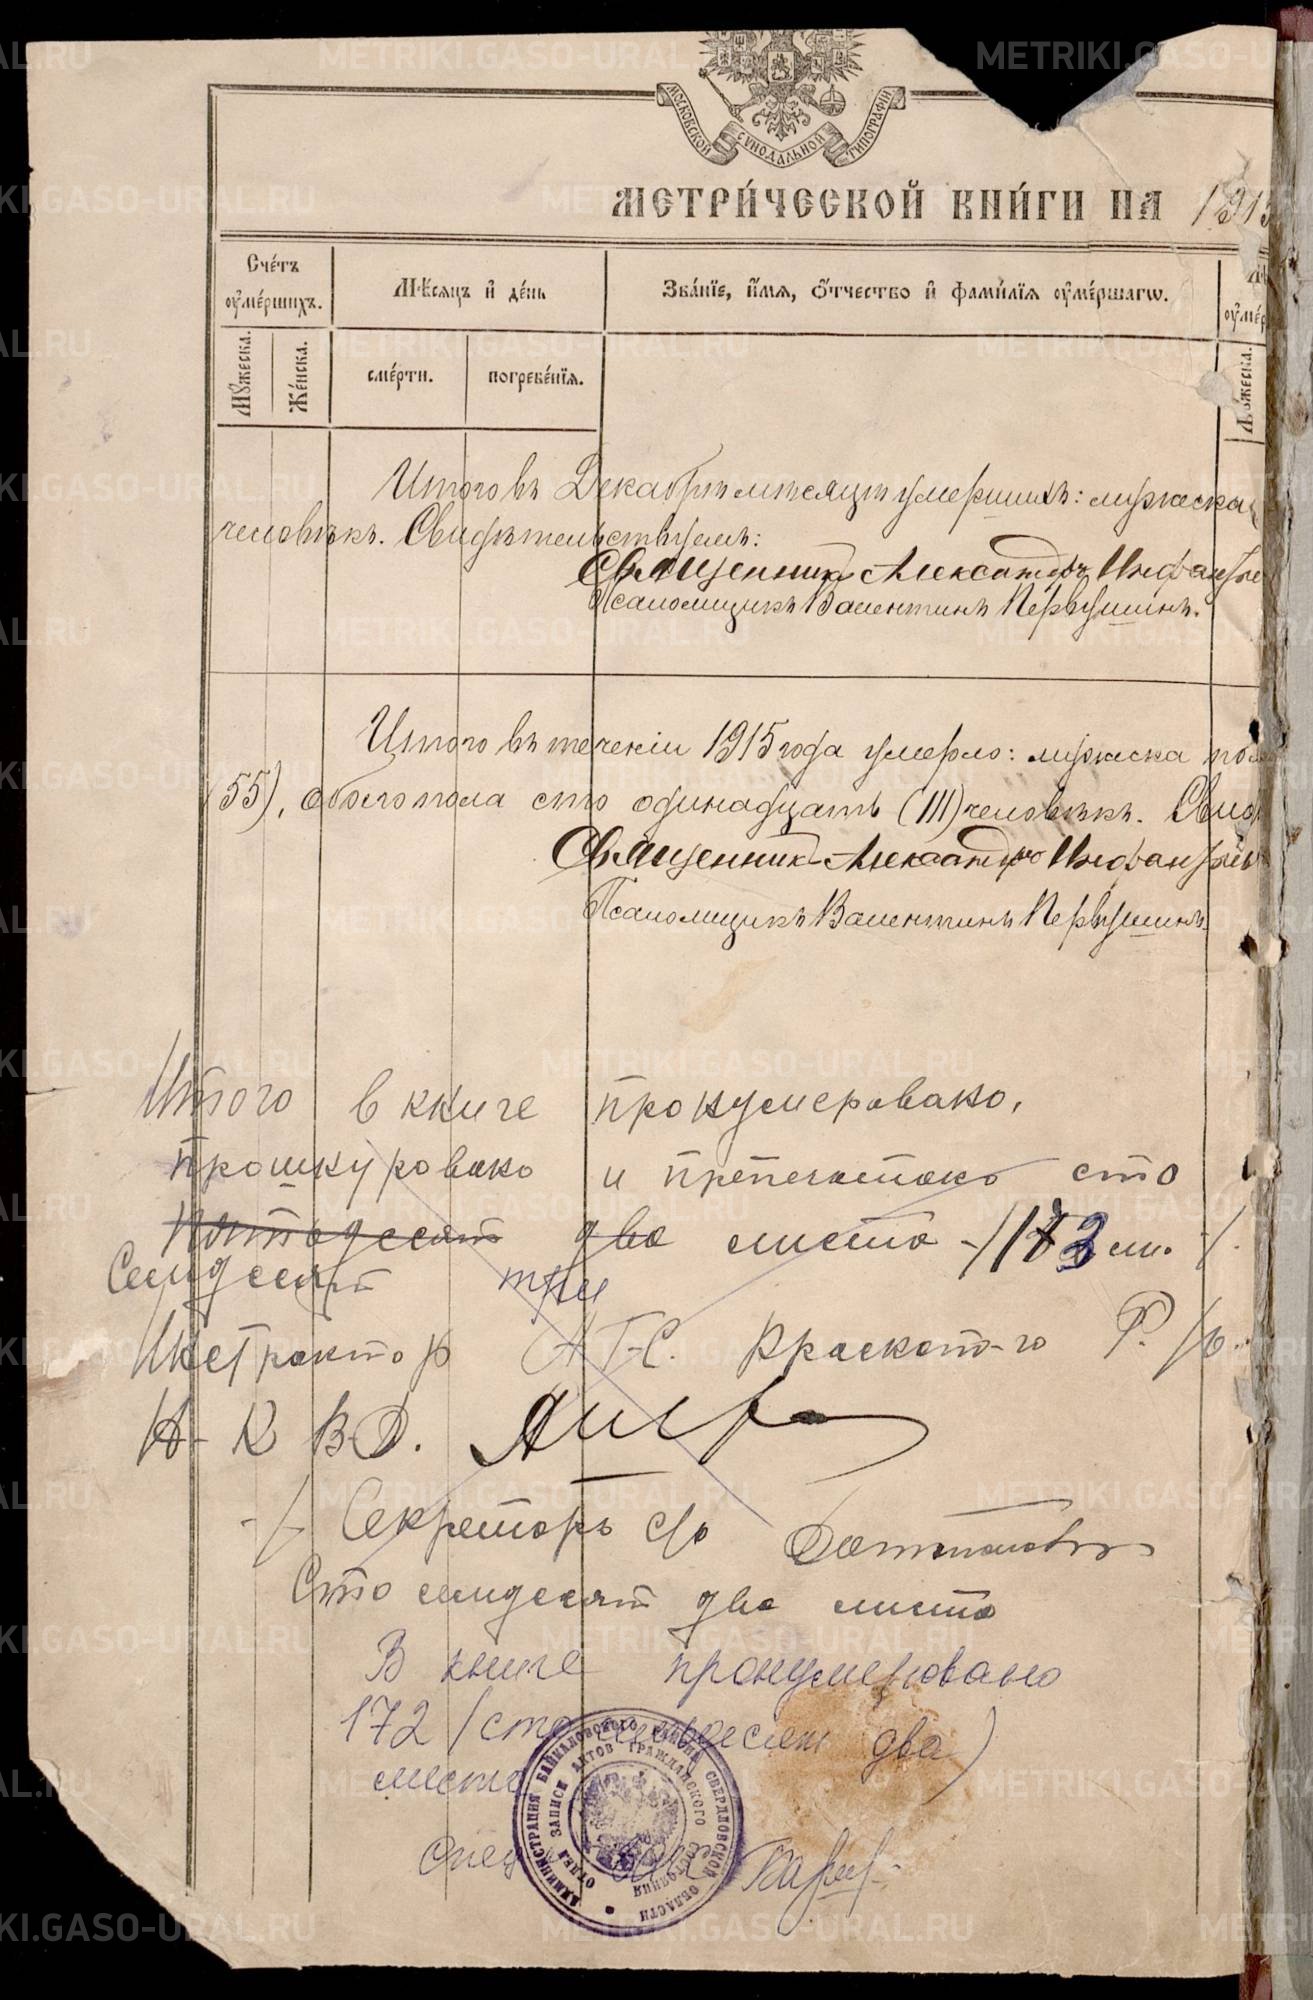 МОСКОВСКОЙ СѴНОДАЛЬНОЙ ТИПОГРАФІИ
МЕТРИ́ЧЕСКОЙ КНИ́ГИ НА 1915
Сче́тъ ᲂу҆ме́ршихъ.
Мѣ́сяцъ и҆ де́нь
Зва́нїе, и҆́мя, ѻ҆́тчество и҆ фами́лїя ᲂу҆ме́ршагѡ.
Мꙋ́жеска.
Же́нска.
сме́рти.
погребе́нїя.
Мꙋ́жеска.
Итого въ Декабрѣ мѣсяцѣ умершихъ: мужеска
человѣкъ. Свидѣтельствуемъ:
Священникъ Александръ Инфантьев
Псаломщикъ Валентинъ Первушинъ.
Итого въ теченіи 1915 года умерло: мужеска пола
(55), обоего пола сто одинадцать (111) человѣкъ. Свид
Священникъ Александръ Инфантьев
Псаломщикъ Валентинъ Первушинъ.
Итого в книге пронумеровано,
прошнуровано и препечатано сто
пятьдесят два листа -/173 лис. /.
Семдесят три
Инструктор А Г-С. Р.
Н-К В-Д.
-/ Секретарь с/с
Сто семдесят два листа
В книге пронумеровано
172 (сто семьдесят два)
листа
Спец. ЗАГС
АДМИНИСТРАЦИЯ БАЙКАЛОВСКОГО РАЙОНА СВЕРДЛОВСКОЙ ОБЛАСТИ
ОТДЕЛ ЗАПИСИ АКТОВ ГРАЖДАНСКОГО СОСТОЯНИЯ
METRIKI.GASO-URAL.RU